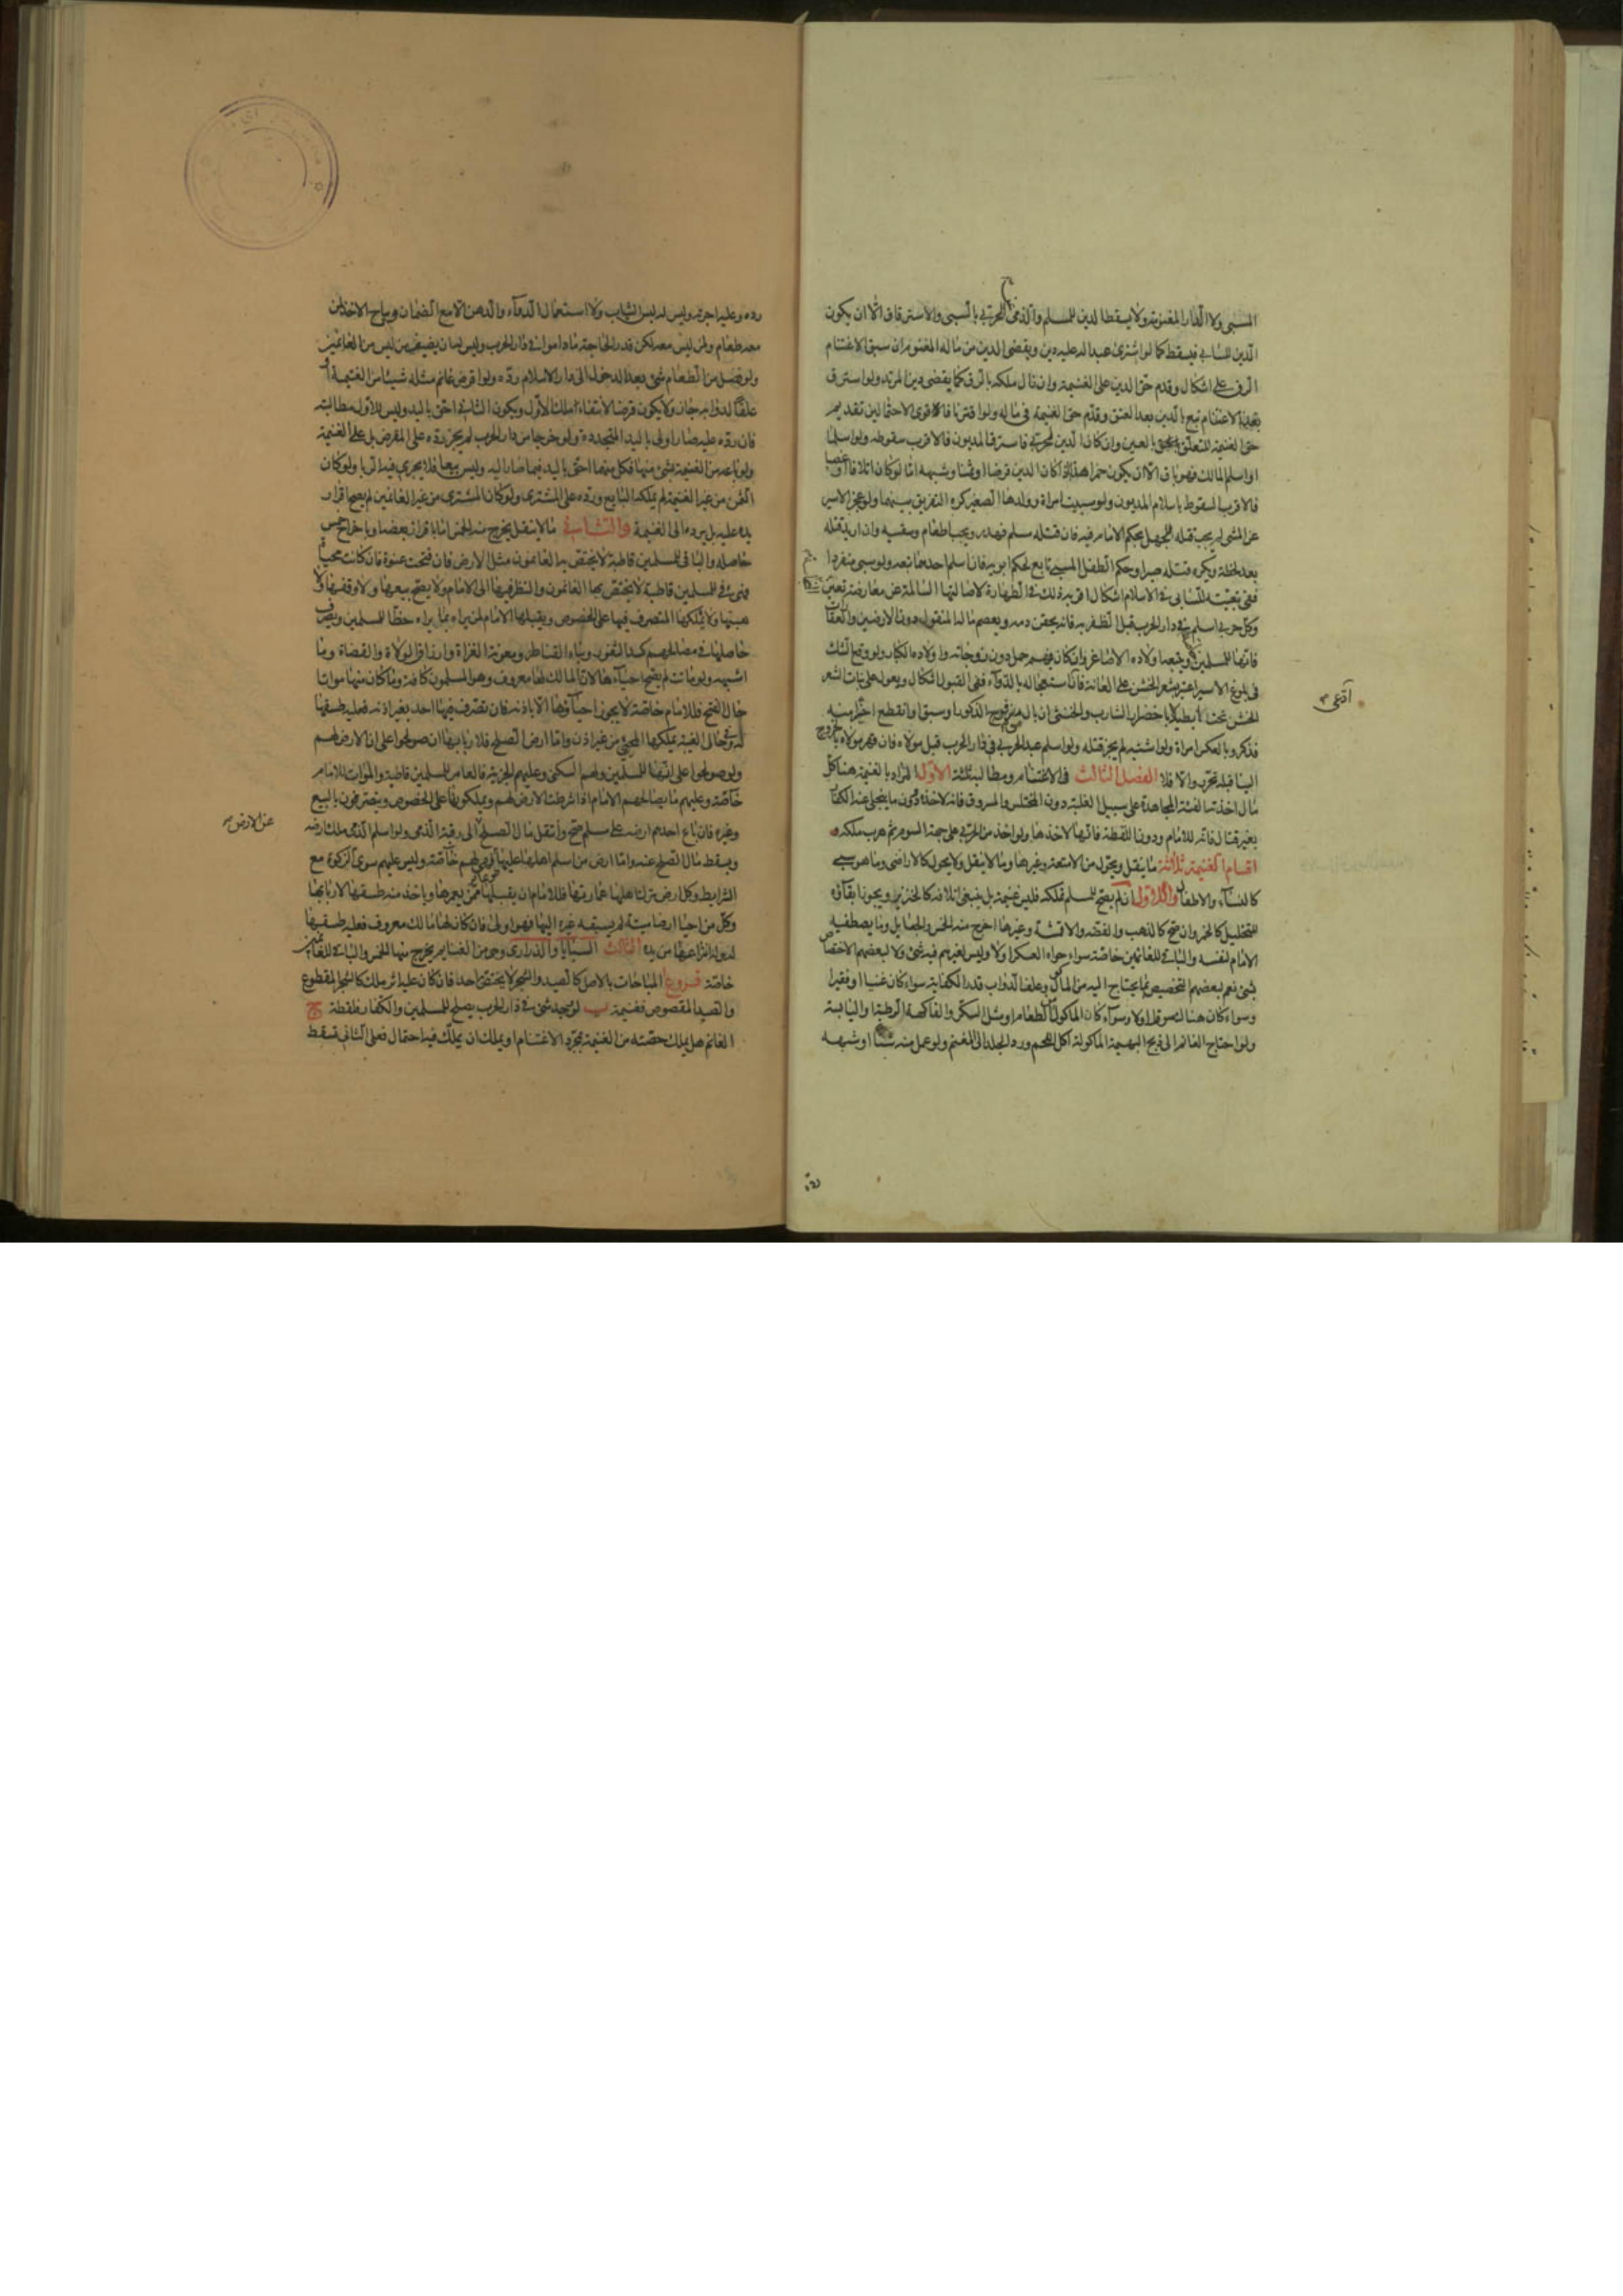 المسبى ولا الدار المغنومة ولا يسقط الدين للمسلم والذمى الحربى بالسبى والاسترقاق الا ان يكون
الدين للسابى فيسقط كما لو اشترى عبدا له عليه دين ويقضى الدين من ماله المغنوم ان سبق الاغتنام
الرق على اشكال وقدم حق الدين على الغنيمة وان زال ملكه بالرق كما يقضى دين المرتد ولو استرق
بعد الاغتنام تبع بالدين بعد العتق وقدم حق الغنيمة فى ماله ولو اقترنا فالاقوى الاحتمالين تقديم
حق الغنيمة المتعلق بالعين وان كان الدين لحربى فاسترق المديون فالاقرب سقوطه ولو اسلما
او اسلم المالك فهو باق الا ان يكون خمرا هذا اذا كان الدين قرضا او ثمنا وشبهه اما لو كان اتلافا او غصبا
فالاقرب السقوط باسلام المديون ولو سبيت امراة وولدها الصغير كره التفريق بينهما ولو عجز الاسير
عن المشى لم يجب قتله للجهل بحكم الامام فيه فان قتله مسلم فهدر ويجب اطعامه وسقيه وان اريد قتله
بعد لحظة ويكره قتله صبرا وحكم الطفل المسبى تابع لحكم ابويه فان اسلم احدهما تبعه ولو سبى منفردا
ففى تبعيته للسابى فى الاسلام اشكال اقربه ذلك فى الطهارة لاصالتها السالمة عن معارضة يقين
وكل حربى اسلم فى دار الحرب قبل الظفر به فانه يحقن دمه ويعصم ماله المنقول دون الارضين والعقارات
فانها للمسلمين ويتبعه اولاده الاصاغر وان كان فيهم حمل دون زوجاته واولاده الكبار ولو وقع الشك
فى بلوغ الاسير اعتبر بشعر الخشن على العانة فان ادعى استعجاله بالدواء ففى القبول اشكال ويعول على نبات الشعر
الخشن تحت الابط لا باخضرار الشارب والخنثى ان بال من فرج الذكور او سبق او انقطع اخيرا منه
فذكر وبالعكس امراة ولو اشتبه لم يجز قتله ولو اسلم عبد الحربى فى دار الحرب قبل مولاه فان قهر مولاه بالخروج
الينا قبله تحرر والا فلا الفصل الثالث فى الاغتنام ومطالبه ثلثة الاول المراد بالغنيمة هنا كل
مال اخذته الفئة المجاهدة على سبيل الغلبة دون المختلس والمسروق فانه لاخذه ودون ما ينجلى عنه الكفار
بغير قتال فانه للامام ودون اللقطة فانها لاخذها ولو اخذ من الحربى على جهة السوم ثم هرب ملكه و
اقسام الغنيمة ثلاثة ما ينقل ويحول من الامتعة وغيرها وما لا ينقل ولا يحول كالاراضى وما هو سبى
كالنساء والاطفال والاول ان لم يصح للمسلم تملكه فليس غنيمة بل ينبغى اتلافه كالخنزير ويجوز ابقاؤه
للتخليل كالخمر وان صح كالذهب والفضة والاقمشة وغيرها اخرج منه الخمس والجعايل وما يصطفيه
الامام لنفسه والباقى للغانمين خاصة سواء حواه العسكر او لا وليس لغيرهم فيه شئ ولا لبعضهم الاختصاص
بشئ نعم لبعضهم التخصيص بما يحتاج اليه من المأكل وعلف الدواب قدر الكفاية سواء كان غنيا او فقيرا
وسواء كان هناك سوق او لا وسواء كان الماكول الطعام او مثل السكر والفاكهة الرطبة واليابسة
ولو احتاج الغانم الى ذبح البهيمة الماكولة اكل اللحم ورد الجلد الى المغنم ولو عمل منه شنا او شبهه
ادعى
رده وعليه اجرته وليس له لبس الثياب ولا استعمال الدواء والدهن الا مع الضمان ويباح الاخذ لمن
معه طعام ولمن ليس معه لكن قدر الحاجة ما داموا فى دار الحرب وليس له ان يضيف من ليس من الغانمين
ولو فضل من الطعام شئ بعد الدخول الى دار الاسلام رده ولو اقرض غانم مثله شيئا من الغنيمة او
علفا لدوابه جاز ولا يكون قرضا لانتفاء ملك الاول ويكون الثانى احق باليد وليس للاول مطالبته
فان رده عليه صار اولى باليد المتجددة ولو خرجا من دار الحرب لم يجز رده على المقرض بل على الغنيمة
ولو باعه من الغنيمة بشئ منها فكل منهما احق باليد فيما صار اليه وليس بيعا فلا يجرى فيه الربا ولو كان
الثمن من غير الغنيمة لم يملكه البايع ورده على المشترى ولو كان المشترى من غير الغانمين لم يصح اقرار
يده عليه بل يرده الى الغنيمة والثانى ما لا ينقل يخرج منه الخمس اما بافراز بعضه او باخراج خمس
حاصله والباقى للمسلمين قاطبة لا يختص به الغانمون مثل الارض فان فتحت عنوة فان كانت محياة
فهى فئ للمسلمين قاطبة لا يختص بها الغانمون والنظر فيها الى الامام ولا يصح بيعها ولا وقفها ولا
هبتها ولا يملكها المتصرف فيها على الخصوص ويقبلها الامام لمن يراه بما يراه حظا للمسلمين ويصرف
حاصلها فى مصالحهم كسد الثغور وبناء القناطر ومعونة الغزاة وارزاق الولاة والقضاة وما
اشبهه ولو ماتت لم يصح احياؤها لان المالك لها معروف وهو المسلمون كافة وما كان منها مواتا
حال الفتح فللامام خاصة لا يجوز احياؤها الا باذنه فان تصرف فيها احد بغير اذنه فعليه طسقها
له وفى حال الغيبة يملكها المحيى من غير اذن واما ارض الصلح فلاربابها ان صولحوا على ان الارض لهم
ولو صولحوا على انها للمسلمين ولهم السكنى وعليهم الجزية فالعامر للمسلمين قاطبة والموات للامام
خاصة وعليهم ما يصالحهم الامام اذا شرطت الارض لهم ويملكونها على الخصوص ويتصرفون بالبيع
وغيره فان باع احدهم ارضه على مسلم صح وانتقل مال الصلح الى رقبة الذمى ولو اسلم الذمى ملك ارضه
ويسقط مال الصلح عنه واما ارض من اسلم اهلها عليها فهى لهم خاصة وليس عليهم سوى الزكوة مع
الشرايط وكل ارض ترك اهلها عمارتها فللامام ان يقبلها ممن يعمرها وياخذ منه طسقها لاربابها
وكل من احيا ارضا ميتة لم يسبقه غيره اليها فهو اولى فان كان لها مالك معروف فعليه طسقها
له وله انتزاعها من يده الثالث السبايا والذرارى وهى من الغنايم يخرج منها الخمس والباقى للغانمين
خاصة فروع ا المباحات بالاصل كالصيد والشجر لا يختص بها احد فان كان عليه اثر ملك كالشجر المقطوع
والصيد المقصوص فغنيمة ب لو وجد شئ فى دار الحرب يصلح للمسلمين والكفار فلقطة ج
الغانم هل يملك حصته من الغنيمة بمجرد الاغتنام او يملك ان يملك فيه احتمال فعلى الثانى تسقط
عن الارض